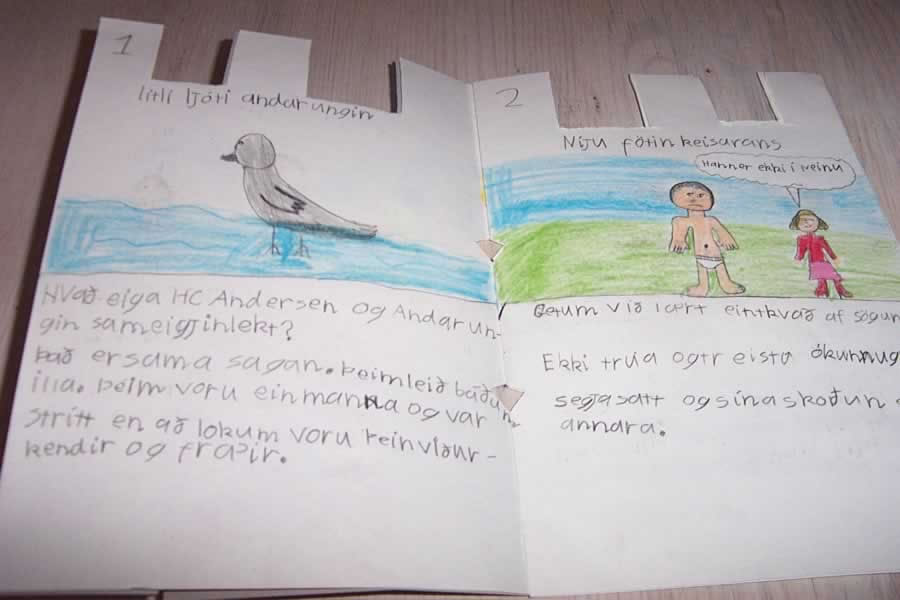 1
litli ljóti andarungin
Hvað eiga HC Andersen og Andarun-
gin sameigjinlekt?
það er sama sagan. þeim leið báðun
illa. þeim voru einmanna og var
strítt en að lokum voru þeir viður-
kendir og fraþir.
2
Níju fötin keisarans
Hann er ekki í neinu
Getum við lært eintkvað af sögun
Ekki trúa og treista ókunnug
segja satt og sína skoðun
annara.